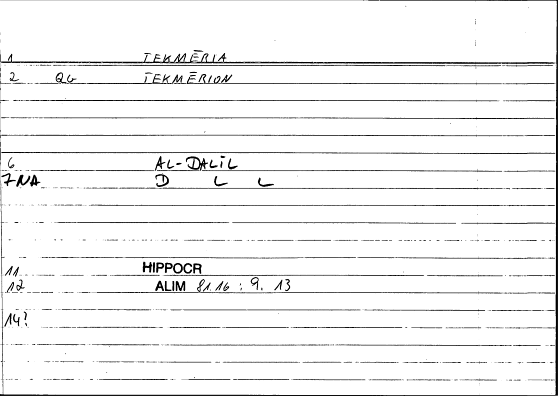 1 TEKMĒRIA
2 QG TEKMĒRION
6 AL-DALĪL
7 NA D L L
11 HIPPOCR
12 ALIM 81.16 : 9. 13
14?